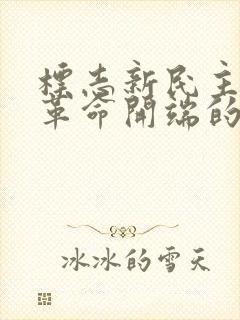 標志新民主
革命開端的
冰冰的雪天